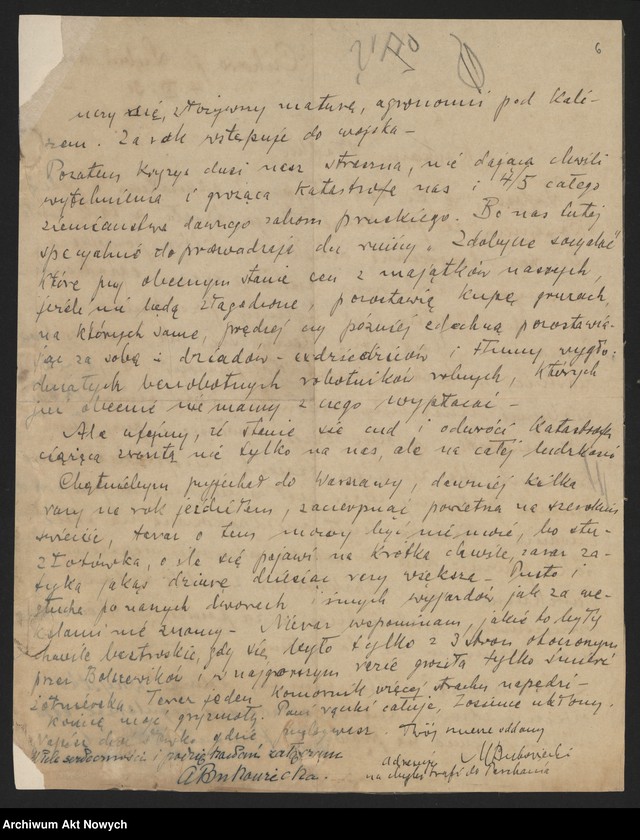 6
uczy się, zdawszy maturę, agronomii pod Kali-
szem. Za rok wstępuje do wojska –
Pozatem kryzys dusi nas straszna, nie dająca chwili
wytchnienia i grożąca katastrofą nas i 4/5 całego
ziemiaństwa dawnego zaboru pruskiego. Bo nas tutaj
specjalnie doprowadzają do ruiny „Zdobycze socjalne"
które przy obecnym stanie cen z majątków naszych,
jeżeli nie będą złagodzone, pozostawią kupę gruzów,
na których same, prędzej czy później zdechną pozostawia-
jąc za sobą dziadów – exdziedziców i tłumy wygło-
dniałych bezrobotnych robotników rolnych, których
już obecnie nie mamy z czego wypłacać –
Ale ufajmy, że stanie się cud i odwróci katastrofę
ciążącą zresztą nie tylko na nas, ale na całej ludzkości
Chętniebym przyjechał do Warszawy, dawniej kilka
razy na rok jeździłem, zaczerpnąć powietrza na szerokim
świecie, teraz o tem mowy być nie może, bo stu-
złotówka, o ile się pojawi na krótką chwilę, zaraz za-
tyka jakąś dziurę dziesięć razy większą – Pusto i
głucho po naszych dworach i innych wyjazdów jak za we-
kslami nie znamy – Nieraz wspominam, jakie to były
chwile beztroskie, gdy się było tylko z 3 stron otoczonym
przez Bolszewików i w najgorszym razie groziła tylko śmierć
żołnierska. Teraz jeden komornik więcej strachu napędzi –
Kończę moje gryzmoły. Pani rączki całuję, Zosine ukłony.
Twój szczerze oddany
MBukowiecki
Wiele serdeczności i podziękowań załączam
ABukowiecka.
Archiwum Akt Nowych